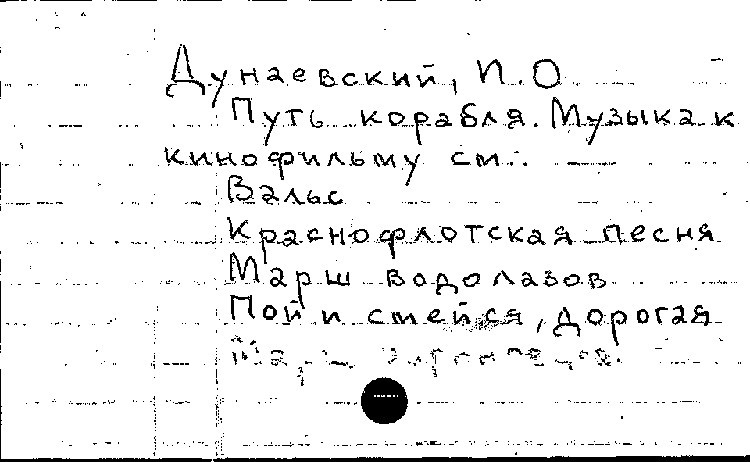 Дунаевский, И.О.
Путь корабля. Музыка к
кинофильму см.:
Вальс
Краснофлотская песня
Марш водолазов
Пой и смейся, дорогая